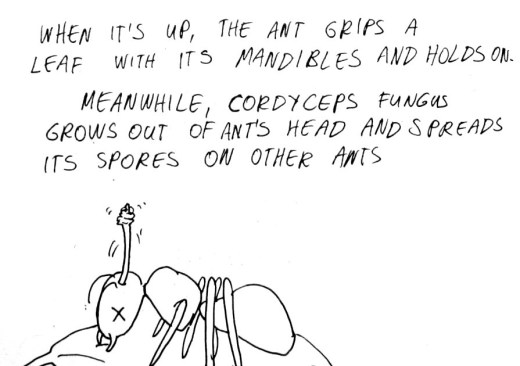 WHEN IT'S UP, THE ANT GRIPS A
LEAF WITH ITS MANDIBLES AND HOLDS ON.
MEANWHILE, CORDYCEPS FUNGUS
GROWS OUT OF ANT'S HEAD AND SPREADS
ITS SPORES ON OTHER ANTS